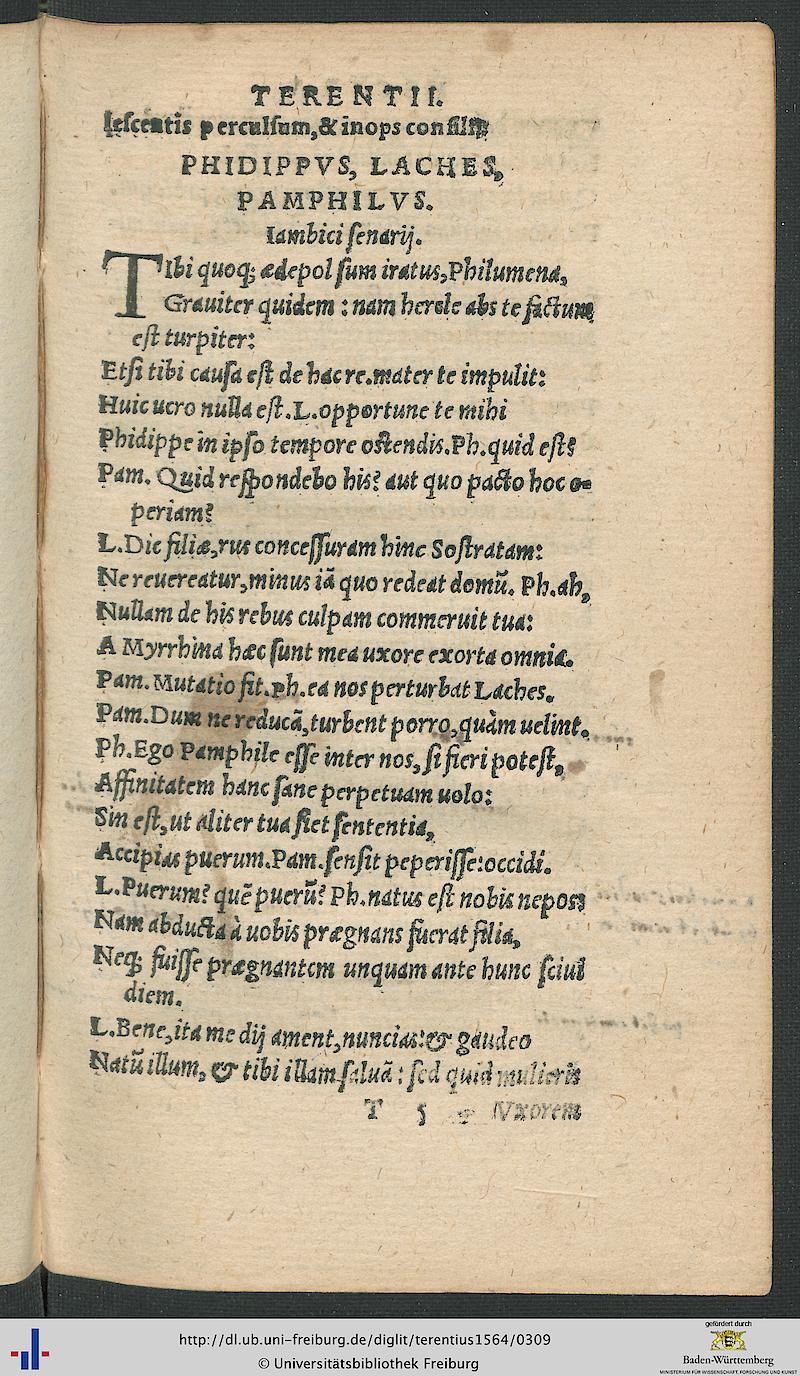 TERENTII.
lescentis perculsum,& inops consilij
PHIDIPPVS, LACHES,
PAMPHILVS.
Iambici senarij.
TIbi quoq; ædepol sum iratus,Philumena,
Grauiter quidem : nam hercle abs te factum
est turpiter:
Etsi tibi causa est de hac re.mater te impulit:
Huic uero nulla est.L.opportune te mihi
Phidippe in ipso tempore ostendis.Ph.quid est?
Pam. Quid respondebo his? aut quo pacto hoc o-
periam?
L.Dic filiæ,rus concessuram hinc Sostratam:
Ne reuereatur,minus iã quo redeat domũ. Ph.ah,
Nullam de his rebus culpam commeruit tua:
A Myrrhina hæc sunt mea uxore exorta omnia.
Pam. Mutatio fit.ph.ea nos perturbat Laches.
Pam.Dum ne reducã,turbent porro,quàm uelint.
Ph.Ego Pamphile esse inter nos,si fieri potest,
Affinitatem hanc sane perpetuam uolo:
Sin est,ut aliter tua siet sententia,
Accipias puerum.Pam.sensit peperisse:occidi.
L.Puerum? quẽ puerũ? Ph.natus est nobis nepos:
Nam abducta à uobis prægnans fuerat filia,
Neq; fuisse prægnantem unquam ante hunc sciui
diem.
L.Bene,ita me dij ament,nuncias:& gaudeo
Natũ illum, & tibi illam saluã : sed quid mulieris
T 5 Vxorem
http://dl.ub.uni-freiburg.de/diglit/terentius1564/0309
© Universitätsbibliothek Freiburg
gefördert durch
Baden-Württemberg
MINISTERIUM FÜR WISSENSCHAFT, FORSCHUNG UND KUNST